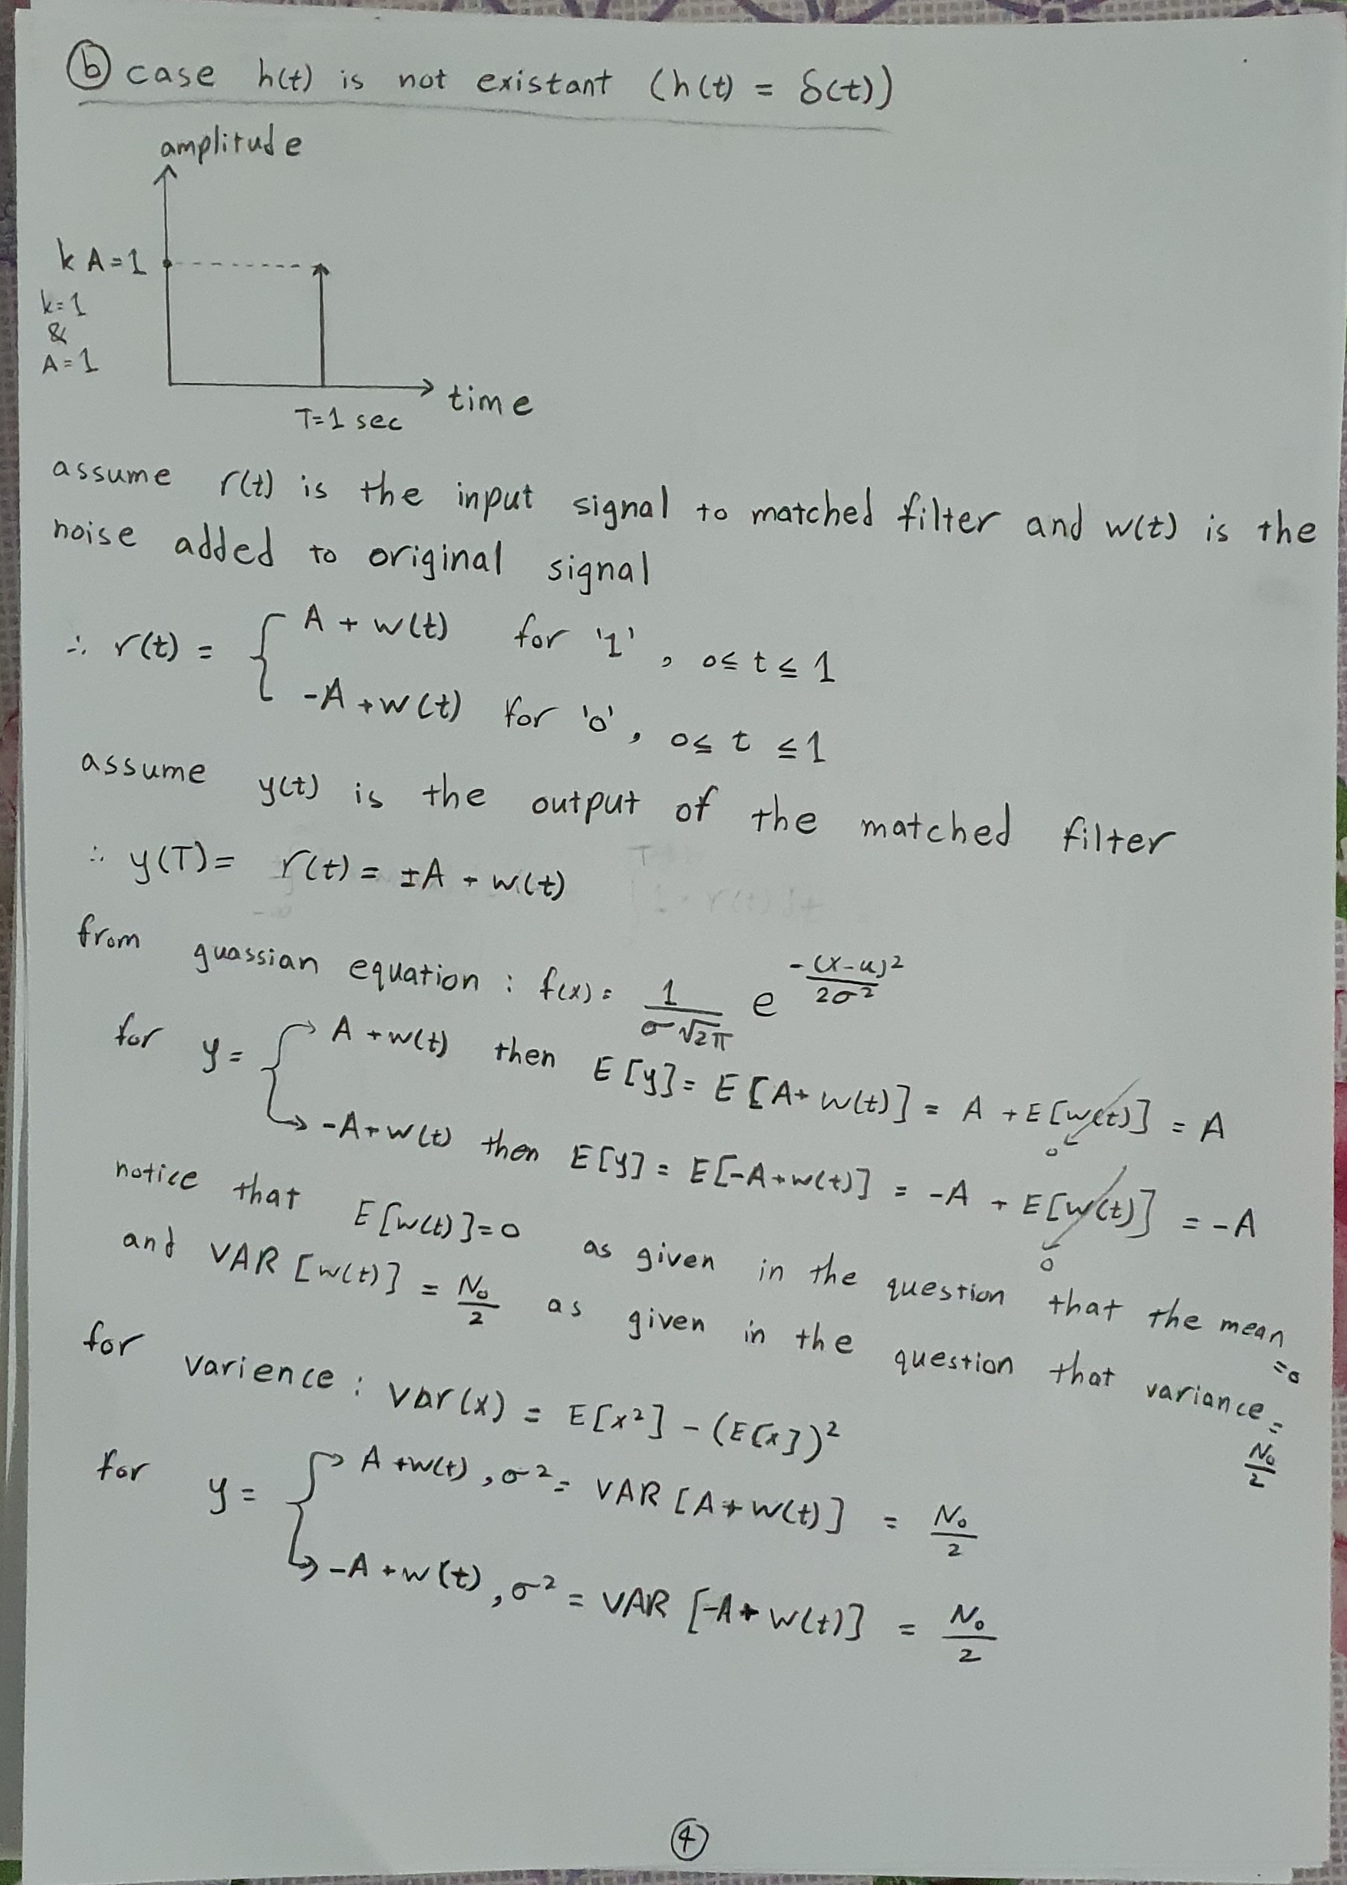 ⓑ case h(t) is not existant (h(t) = δ(t))
amplitude
k A=1
k=1
&
A=1
time
T=1 sec
assume r(t) is the input signal to matched filter and w(t) is the
noise added to original signal
∴ r(t) = { A + w(t) for '1', 0≤t≤1
-A+w(t) for '0', 0≤t≤1
assume y(t) is the output of the matched filter
∴ y(T)= r(t) = ±A + w(t)
from guassian equation : f(x)= 1/(σ√2π) e^(-(x-u)²/2σ²)
for y= { A+w(t) then E[y]= E[A+w(t)] = A + E[w(t)] = A
0
-A+w(t) then E[y] = E[-A+w(t)] = -A + E[w(t)] = -A
0
notice that E[w(t)]=0 as given in the question that the mean =0
and VAR [w(t)] = N₀/2 as given in the question that variance = N₀/2
for varience : var(x) = E[x²] - (E[x])²
for y= { A+w(t), σ² = VAR [A+w(t)] = N₀/2
-A+w(t), σ² = VAR [-A+w(t)] = N₀/2
④